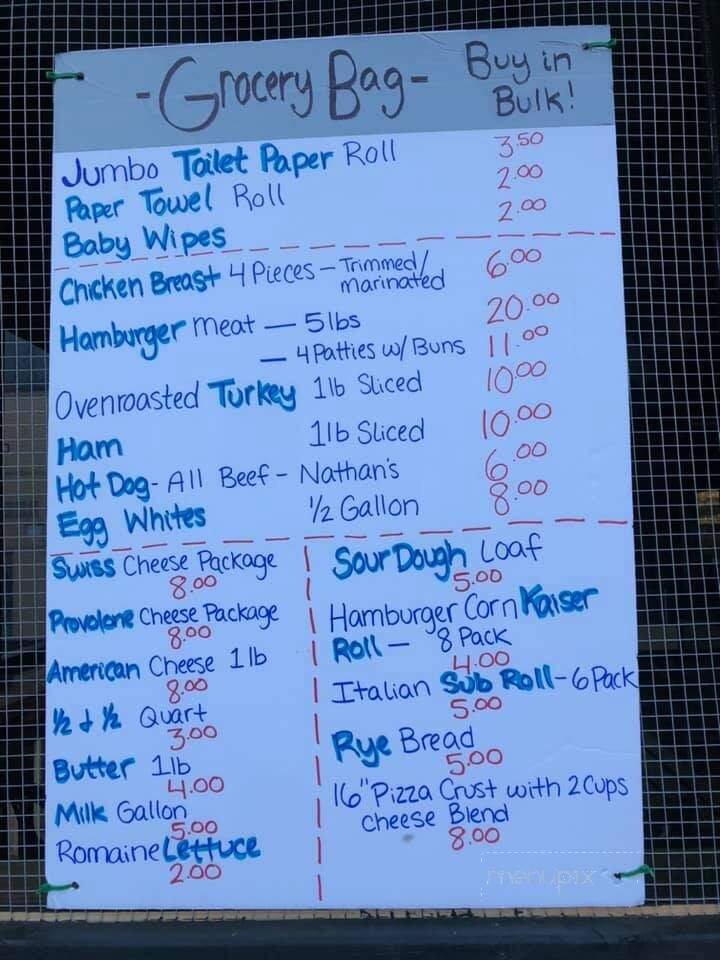 - Grocery Bag - Buy in Bulk!
Jumbo Toilet Paper Roll 3.50
Paper Towel Roll 2.00
Baby Wipes 2.00
Chicken Breast 4 Pieces - Trimmed/ marinated 6.00
Hamburger meat — 5 lbs 20.00
— 4 Patties w/ Buns 11.00
Ovenroasted Turkey 1lb Sliced 10.00
Ham 1lb Sliced 10.00
Hot Dog - All Beef - Nathan's 6.00
Egg Whites 1/2 Gallon 8.00
Swiss Cheese Package
8.00
Provolone Cheese Package
8.00
American Cheese 1 lb
8.00
1/2 & 1/2 Quart
3.00
Butter 1lb
4.00
Milk Gallon
5.00
Romaine Lettuce
2.00
Sour Dough Loaf
5.00
Hamburger Corn Kaiser
Roll — 8 Pack
4.00
Italian Sub Roll - 6 Pack
5.00
Rye Bread
5.00
16" Pizza Crust with 2 Cups
cheese Blend
8.00
menupix